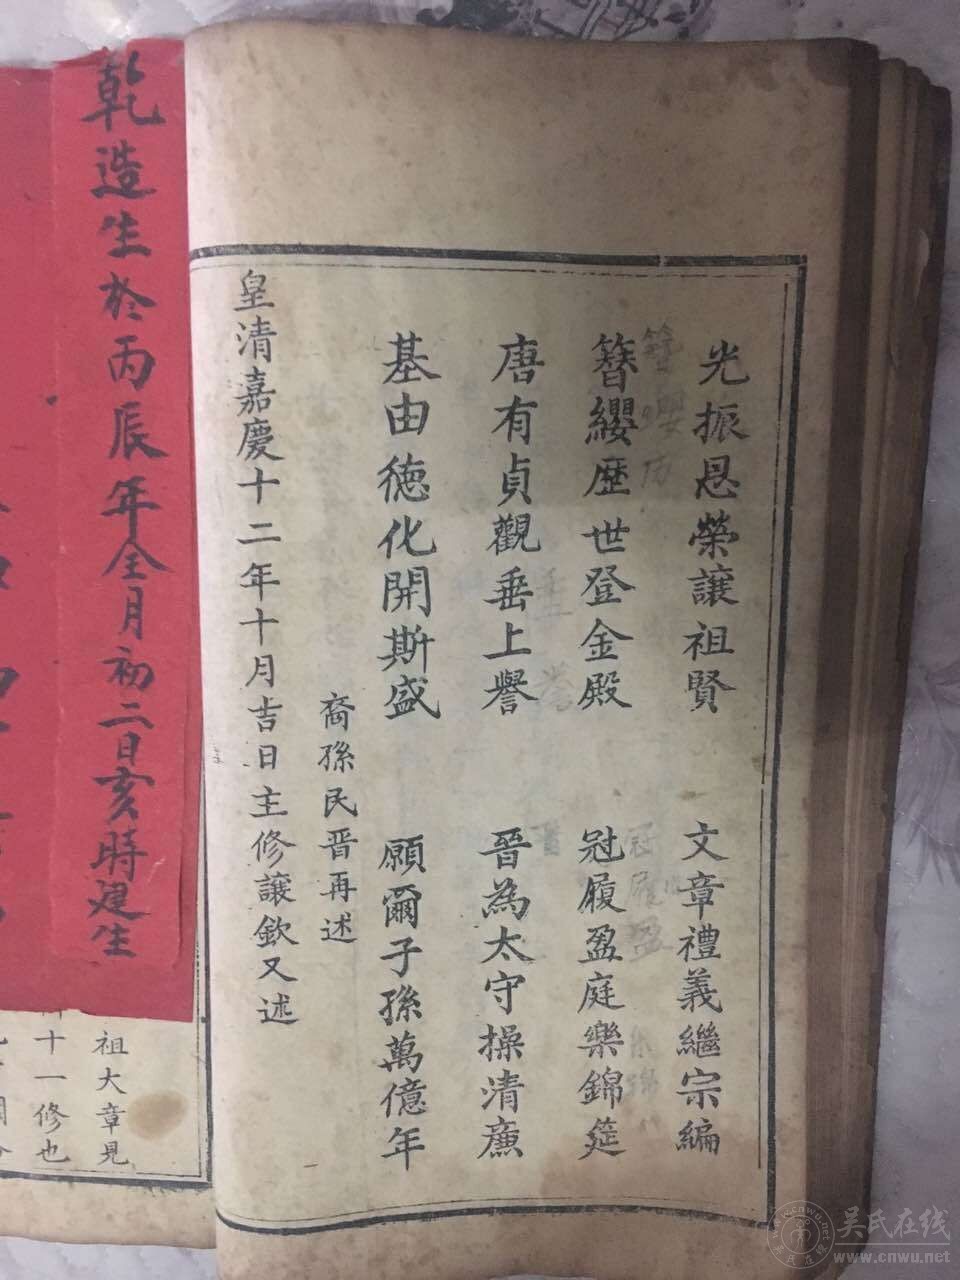 光振恩榮讓祖賢　文章禮義繼宗編
簪纓歷世登金殿　冠履盈庭樂錦筵
唐有貞觀垂上譽　晉為太守操清廉
基由德化開斯盛　願爾子孫萬億年
裔孫民晋再述
皇清嘉慶十二年十月吉日主修讓欽又述
乾造生於丙辰年全月初二日亥時建生
祖大章見
十一修也
吴氏在线
www.cnwu.net